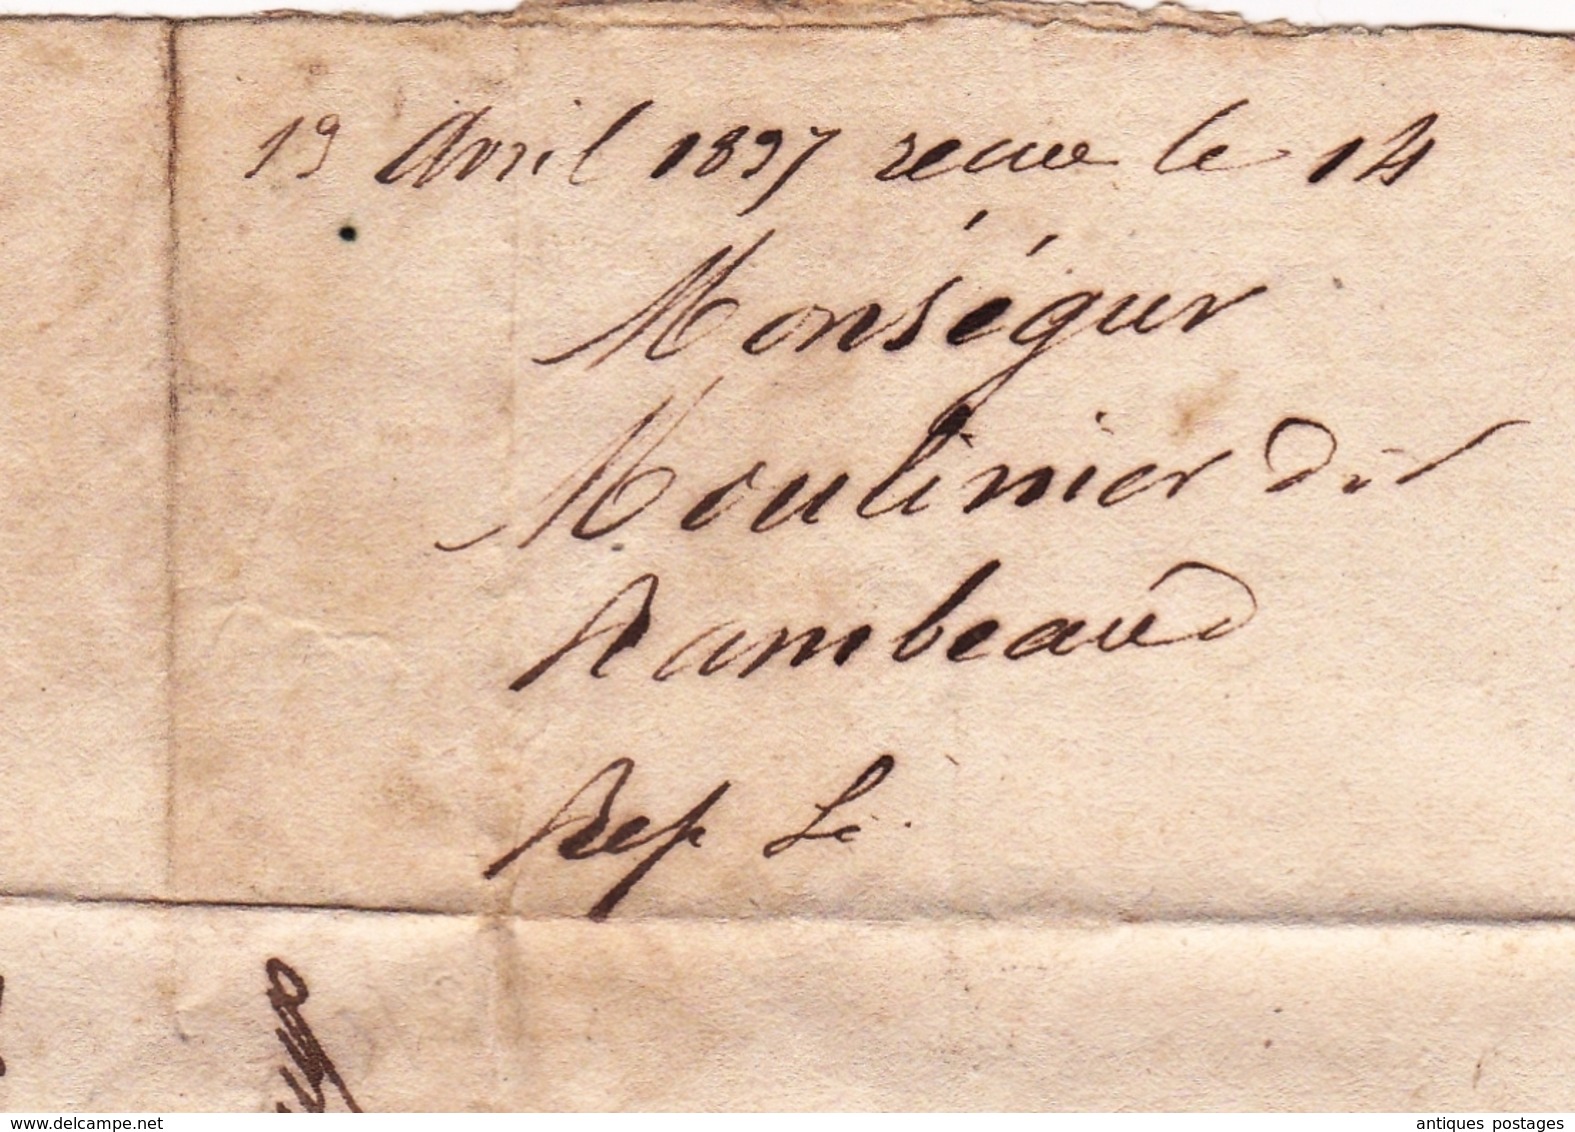 13 Avril 1837 recue le 14
Monségur
Moulinier dit
Rambeaud
Rep Le
delcampe.net
antiques postages